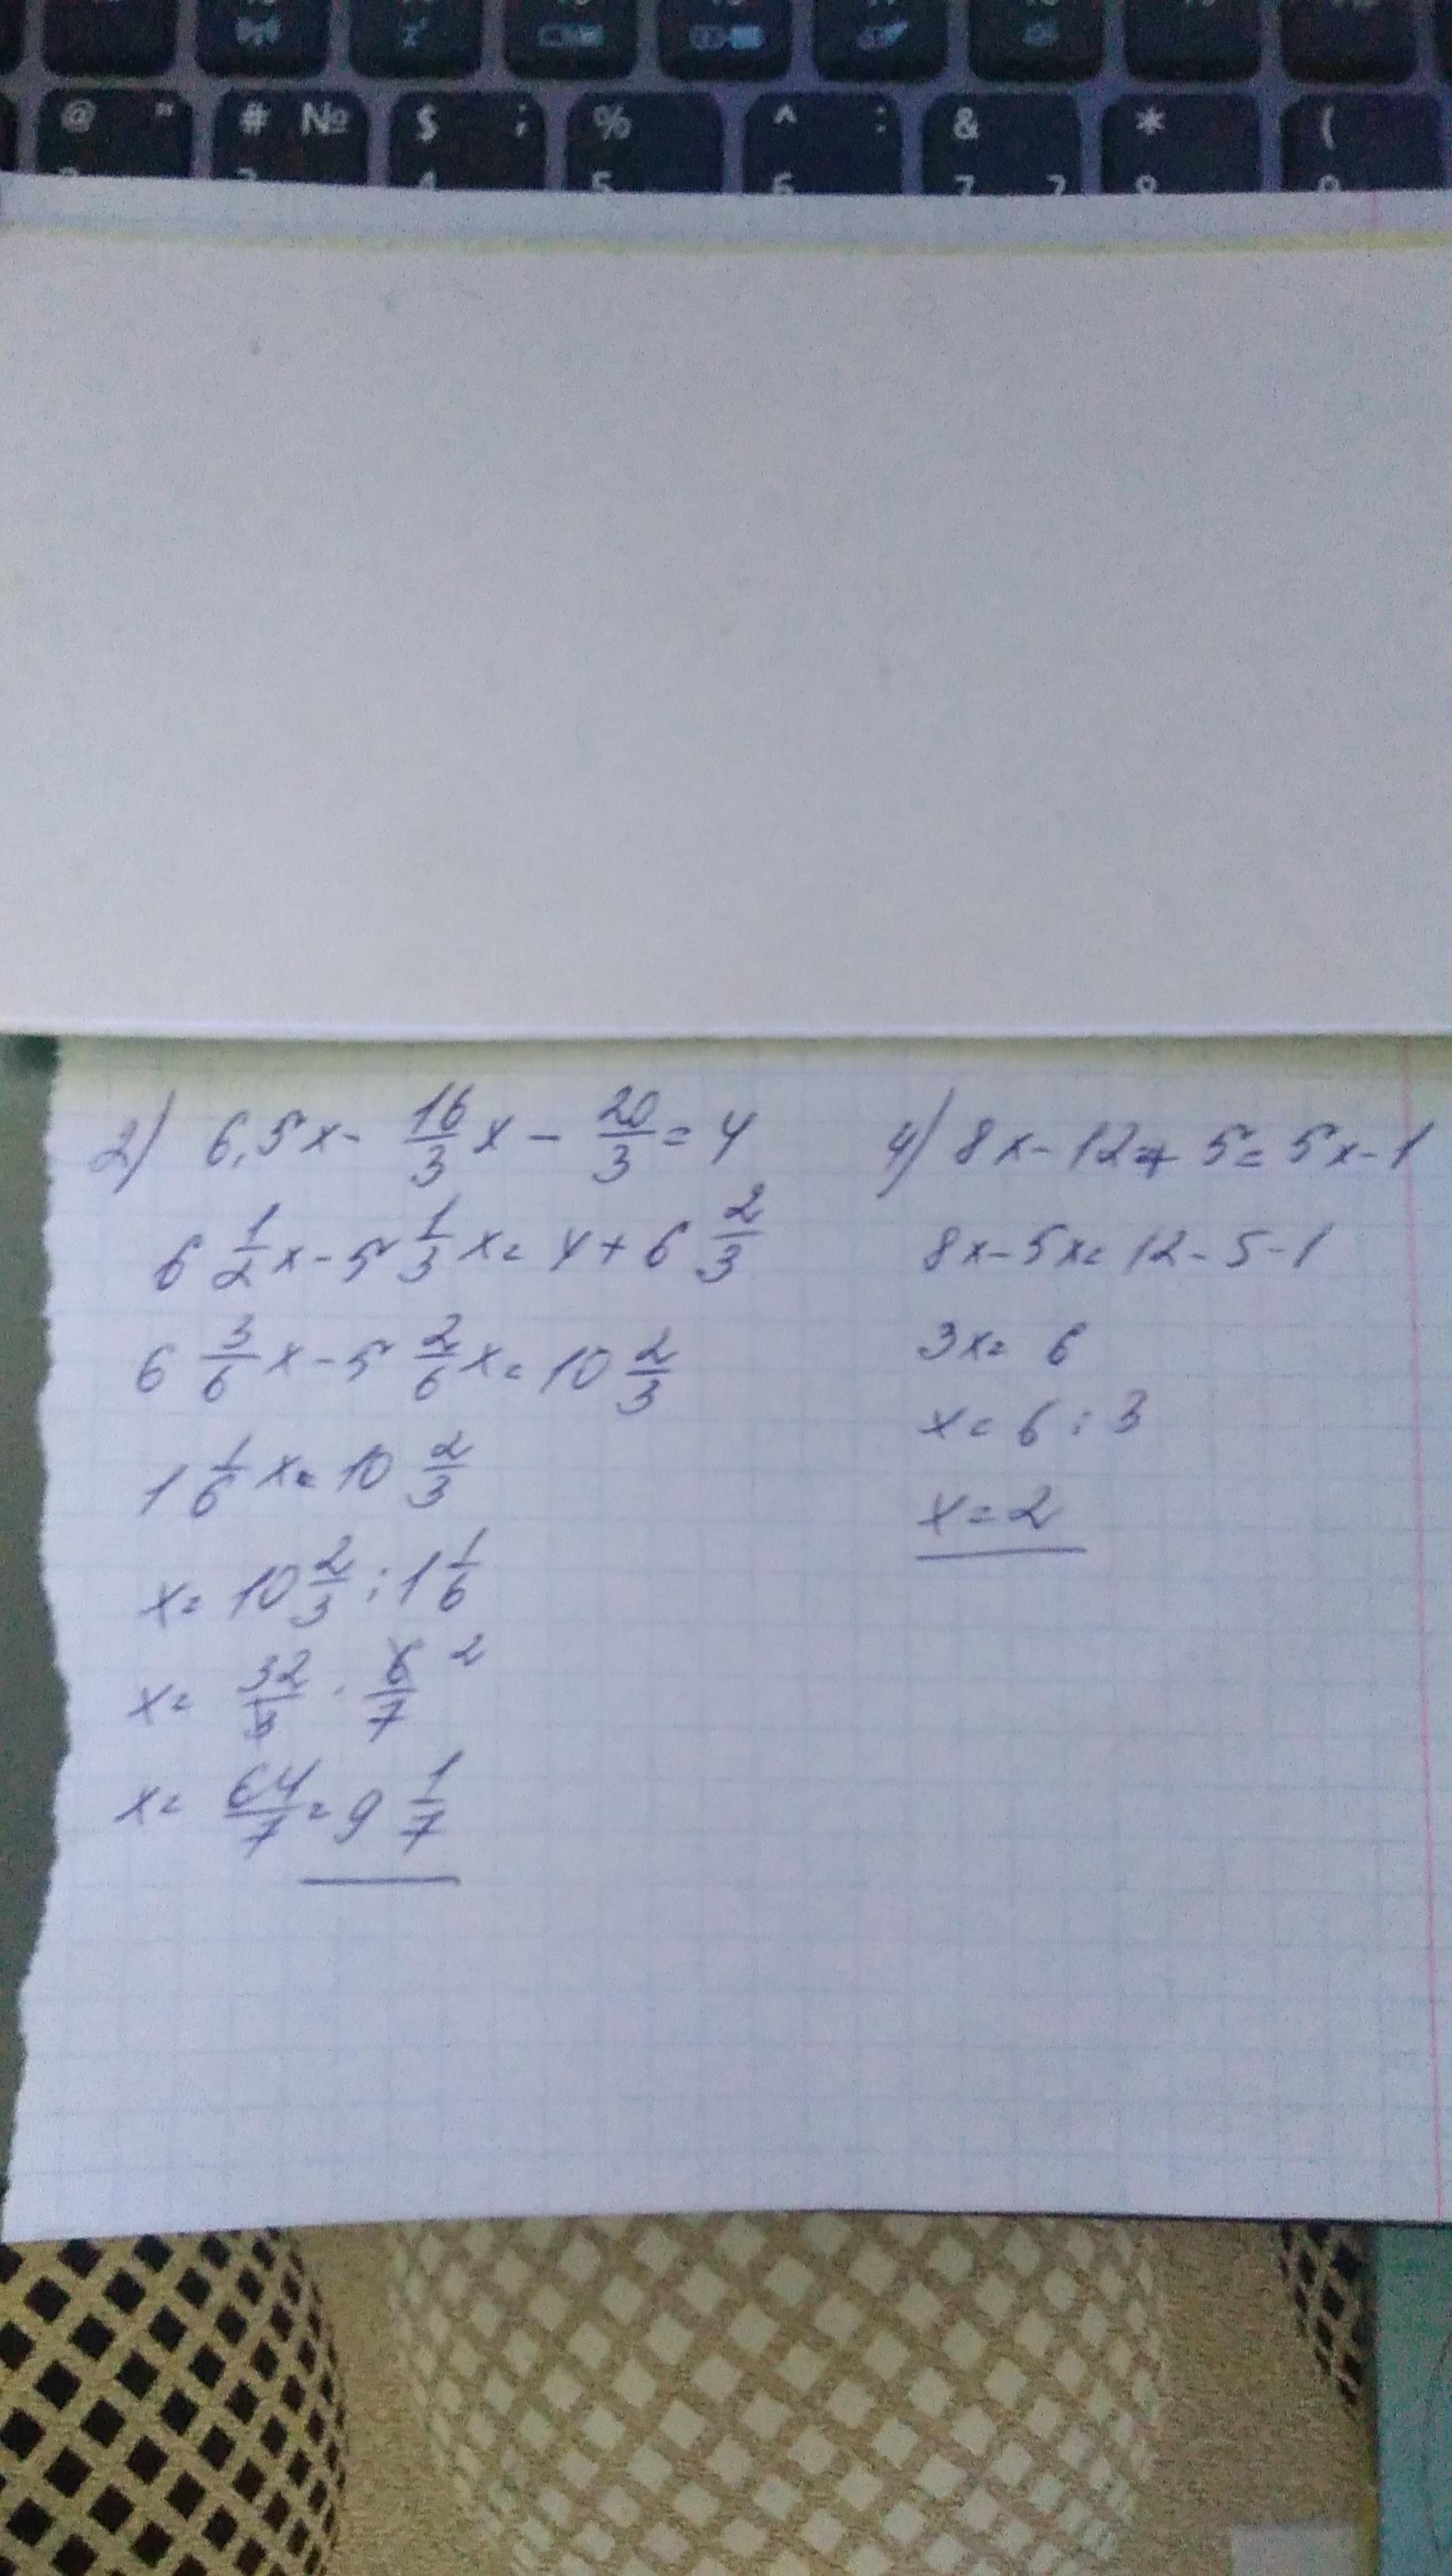 @ " # № $ ; % ^ : & * (
5 6 7 ?
2) 6,5x - 16/3 x - 20/3 = 4
6 1/2 x - 5 1/3 x = 4 + 6 2/3
6 3/6 x - 5 2/6 x = 10 2/3
1 1/6 x = 10 2/3
x = 10 2/3 : 1 1/6
x = 32/3 · 6/7 2
x = 64/7 = 9 1/7
4) 8x - 12 + 5 = 5x - 1
8x - 5x = 12 - 5 - 1
3x = 6
x = 6 : 3
x = 2